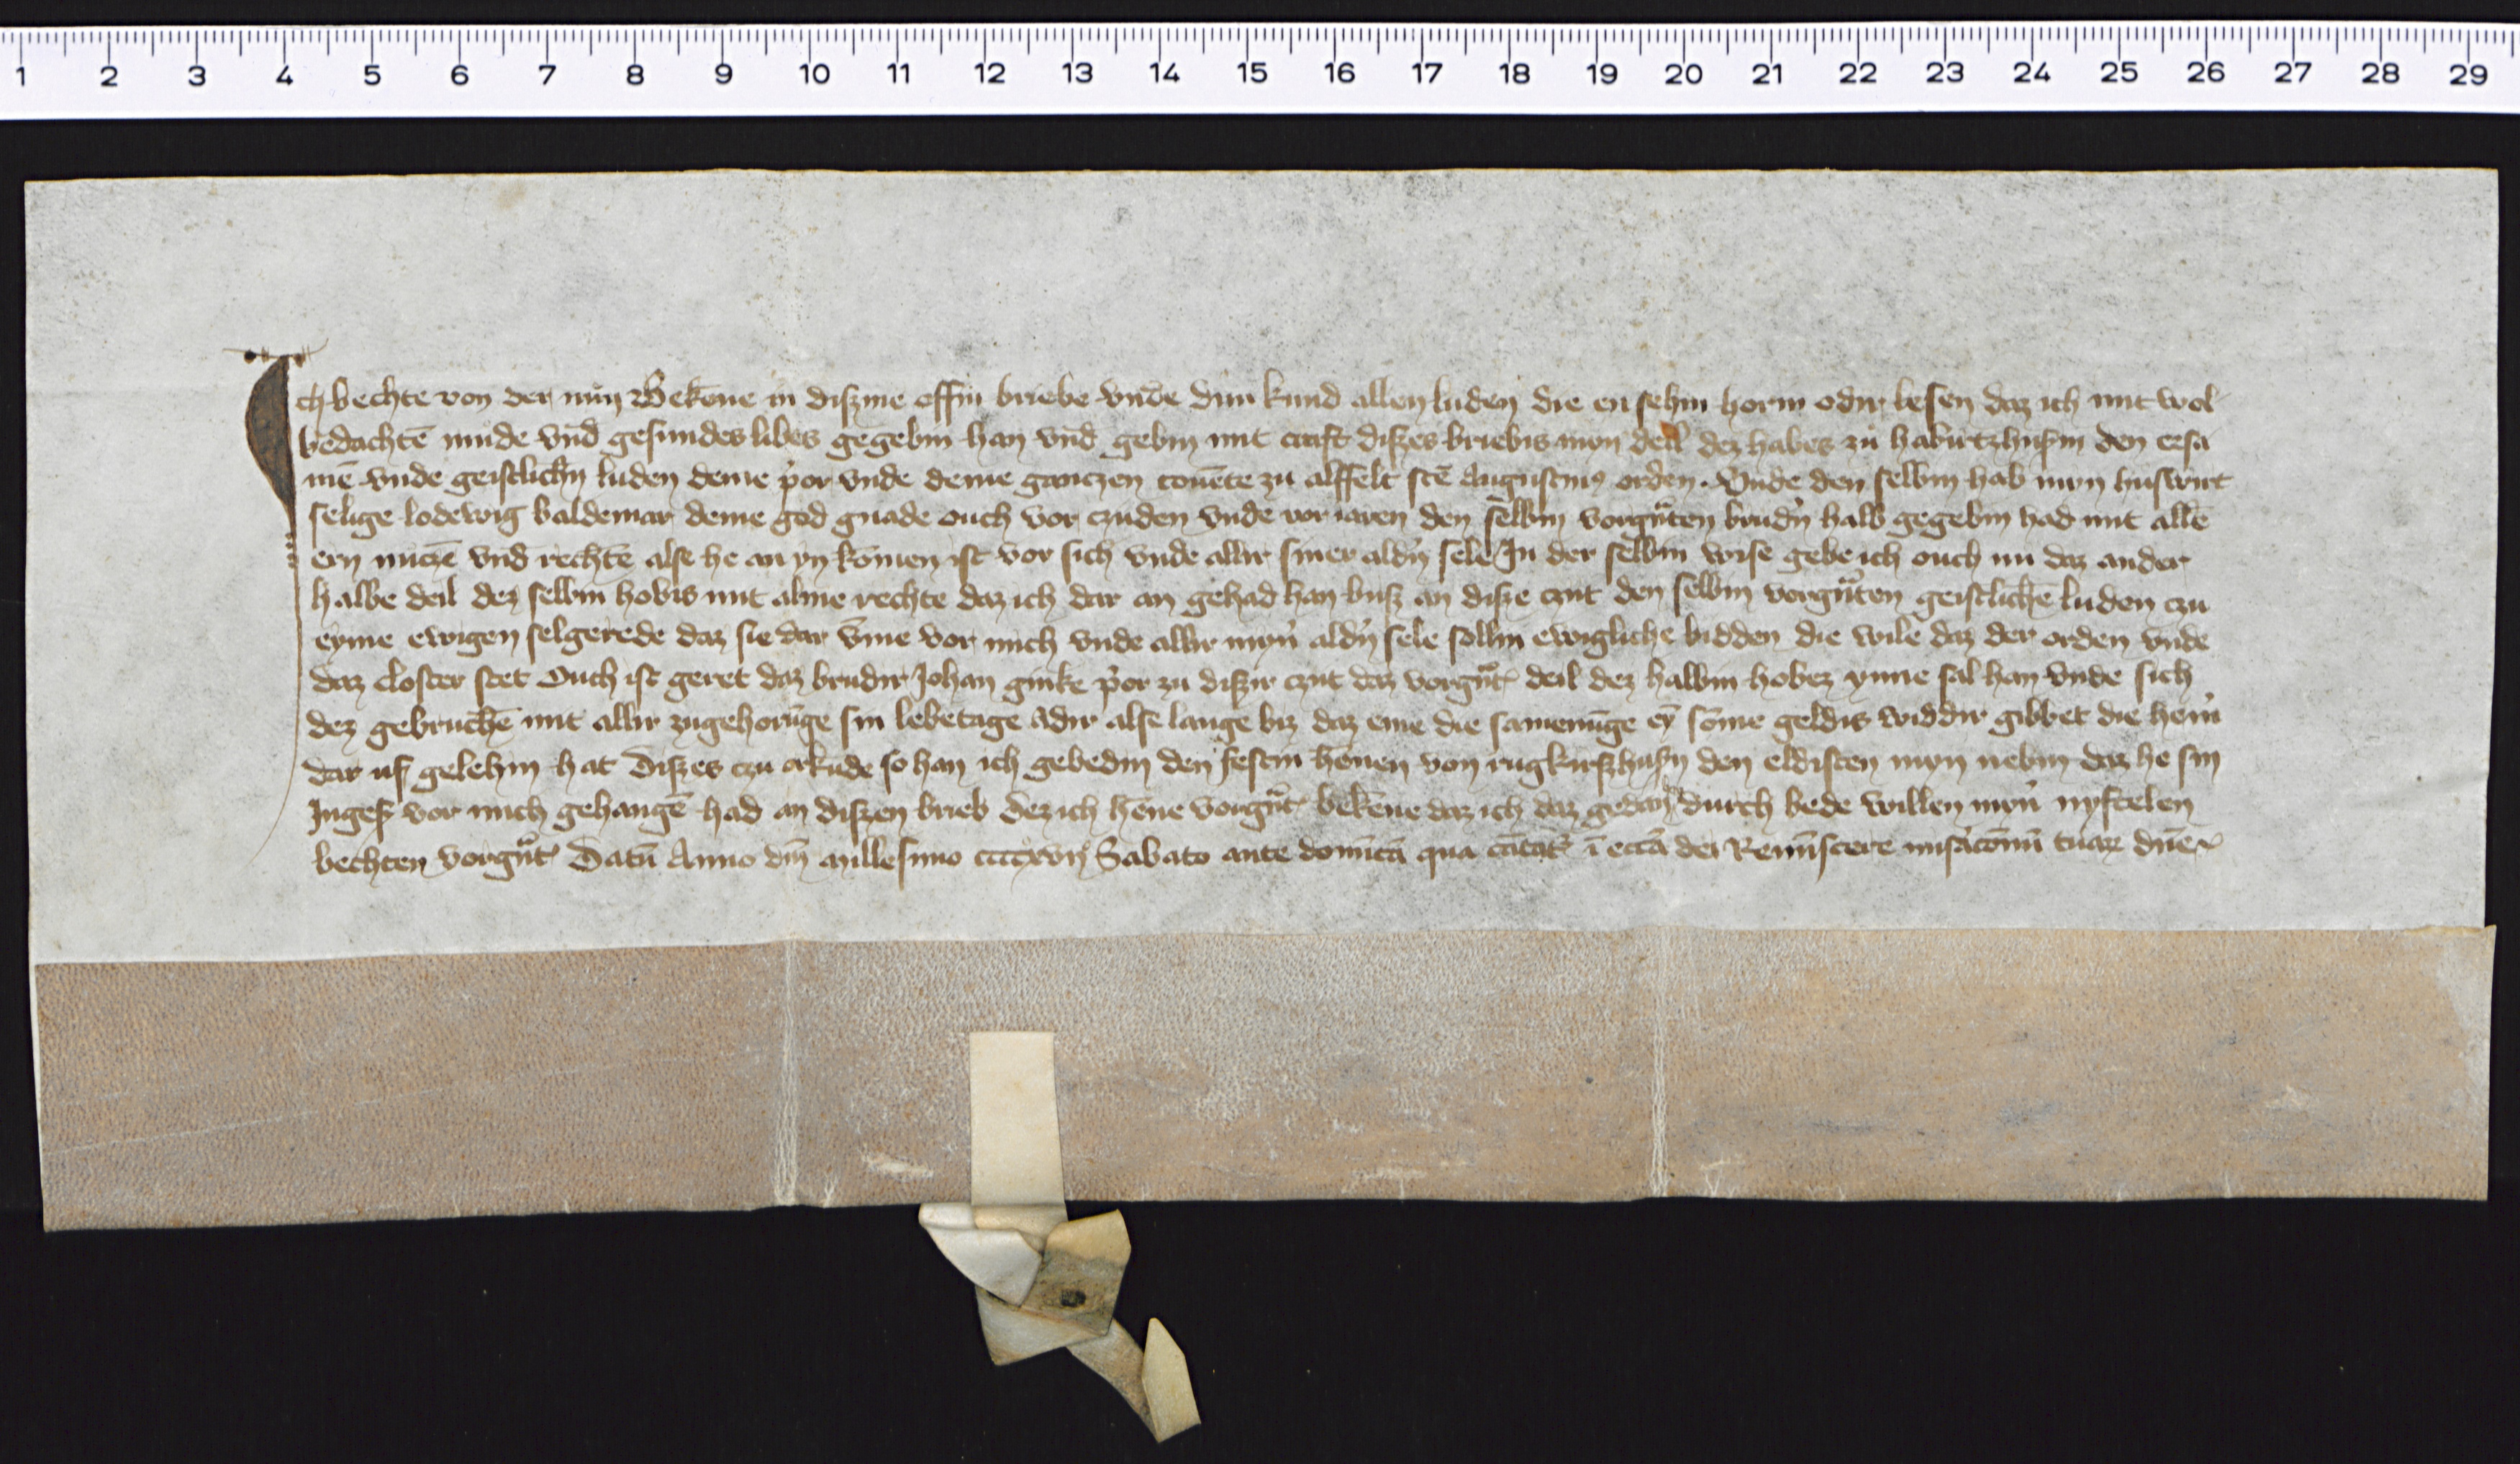 1 2 3 4 5 6 7 8 9 10 11 12 13 14 15 16 17 18 19 20 21 22 23 24 25 26 27 28 29
Ich bechte von der nuͦn Bekēne in diszme offin briebe vnde dun kund allen luden die en sehin horin odir lesen daz ich mit wol
bedachtē mude vnd gesundes libes gegebin han vnd gebin mit craft diszes briebis myn deil dez habes zu haburtzhusin den ersa
mē vnde geistlichin luden deme p̓or vnde deme ganczen couēte zu alffelt sc̄te Augustinꝰ orden. Vnde den selbin hab myn huswirt
selige lodewig baldemar deme god gnade ouch vor czuden vnde vor iaren den selbin vorgn̄ten brudn̓ halb gegebin had mit allē
ern nuczē vnd rechtē alse he an yn komen ist vor sich vnde allir siner aldn̓ sele In der selbin wise gebe ich ouch nu daz ander
halbe deil dez selbin hobis mit alme rechte daz ich dar an gehad han busz an disze czut den selbin vorgn̄ten geistlichē luden czu
eyme ewigen selgerede daz sie dar v̄me vor mich vnde allir myn̓ aldn̓ sele sollin ewigliche bidden die wile daz der orden vnde
daz closter stet Ouch ist geret daz brudir Johan ginke p̓or zu diszir czut daz vorgn̄t deil dez halbin hobez ynne sal han vnde sich
dez gebruchē mit allir zugehorūge sin lebetage adir alse lange biz daz eme die samenūge eȳ sōme geldis widdir gibbet die hein̓
dar uf gelehin hat Diszes czu orkūde so han ich gebedin den festin hēnen von rugkirszhusin den eldisten myn nebin daz he sin
Ingesz vor mich gehangē had an diszen brieb Dez ich hēne vorgn̄t bekēne daz ich daz gedan durch bede willen myn̓ nyftelen
bechten vorgn̄t Datū Anno dn̄i millesimo ccccxvij Sabato ante domīcā qua cātat̓ ī ecc̄a dei Remīscere mis̓acōnū tuaꝝ dn̄e